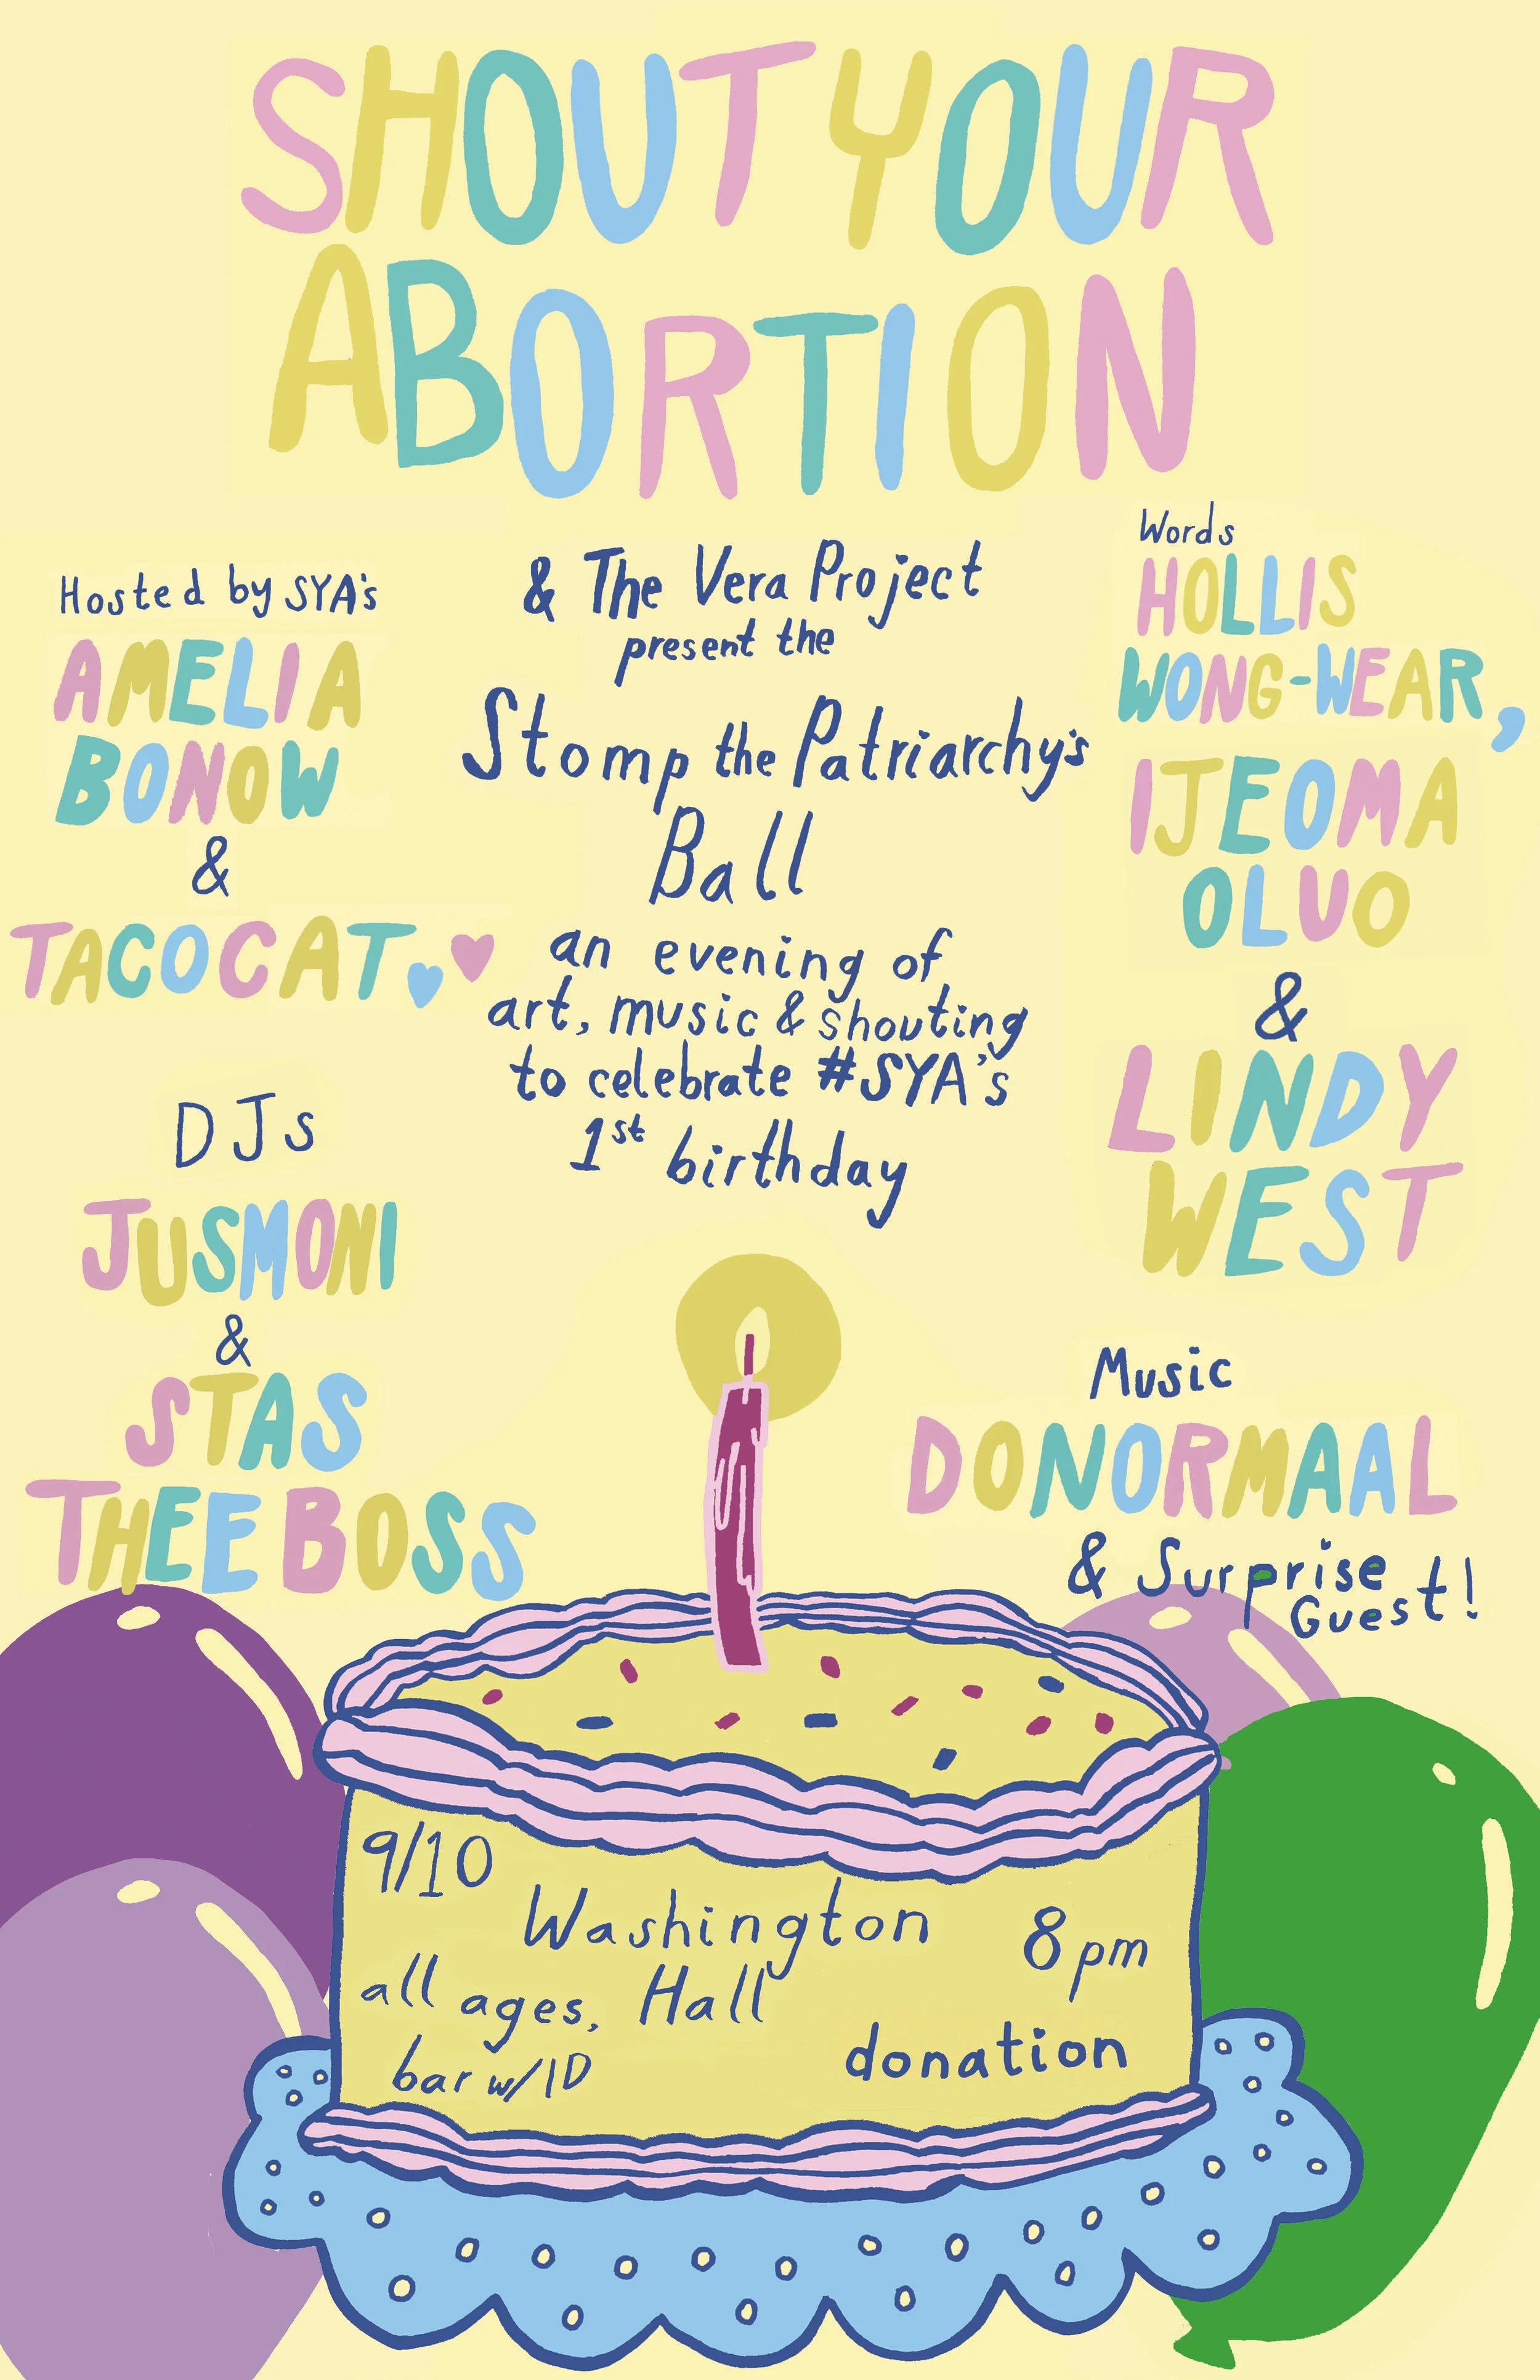 SHOUT YOUR
ABORTION
& The Vera Project
present the
Stomp the Patriarchy's
Ball
an evening of
art, music & shouting
to celebrate #SYA's
1st birthday
Hosted by SYA's
AMELIA
BONOW
&
TACOCAT
DJs
JUSMONI
&
STAS
THEE BOSS
Words
HOLLIS
WONG-WEAR,
IJEOMA
OLUO
&
LINDY
WEST
Music
DONORMAAL
& Surprise
Guest!
9/10
Washington
Hall
8pm
all ages,
bar w/ID
donation